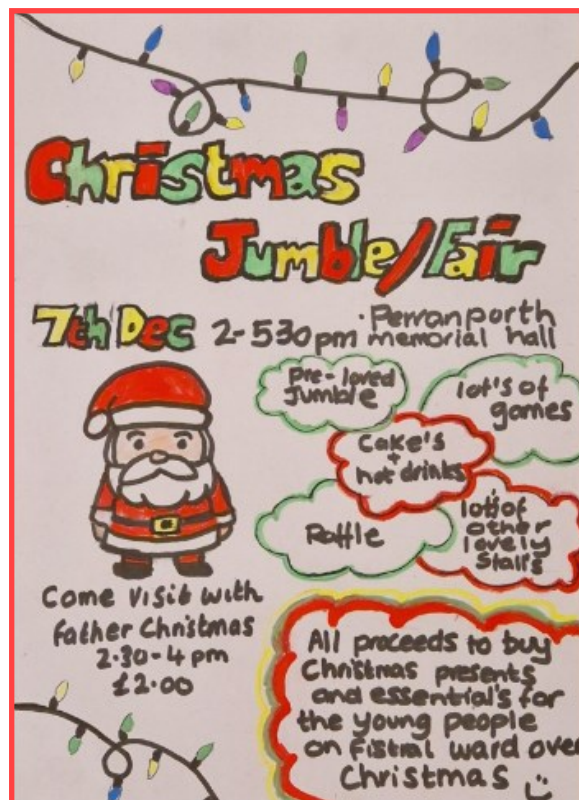 Christmas
Jumble/Fair
7th Dec 2-530pm · Perranporth
memorial hall
Pre-loved
Jumble
lot's of
games
Cake's
+
hot drinks
Raffle
lot's of
other
lovely
Stall's
Come Visit with
Father Christmas
2.30-4pm
£2.00
All proceeds to buy
Christmas presents
and essential's for
the young people
on Fistral ward over
Christmas